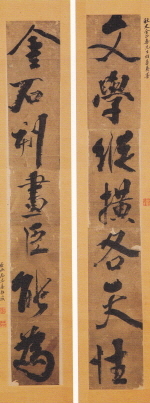 文學縱橫各天性
金石刻畫臣能為